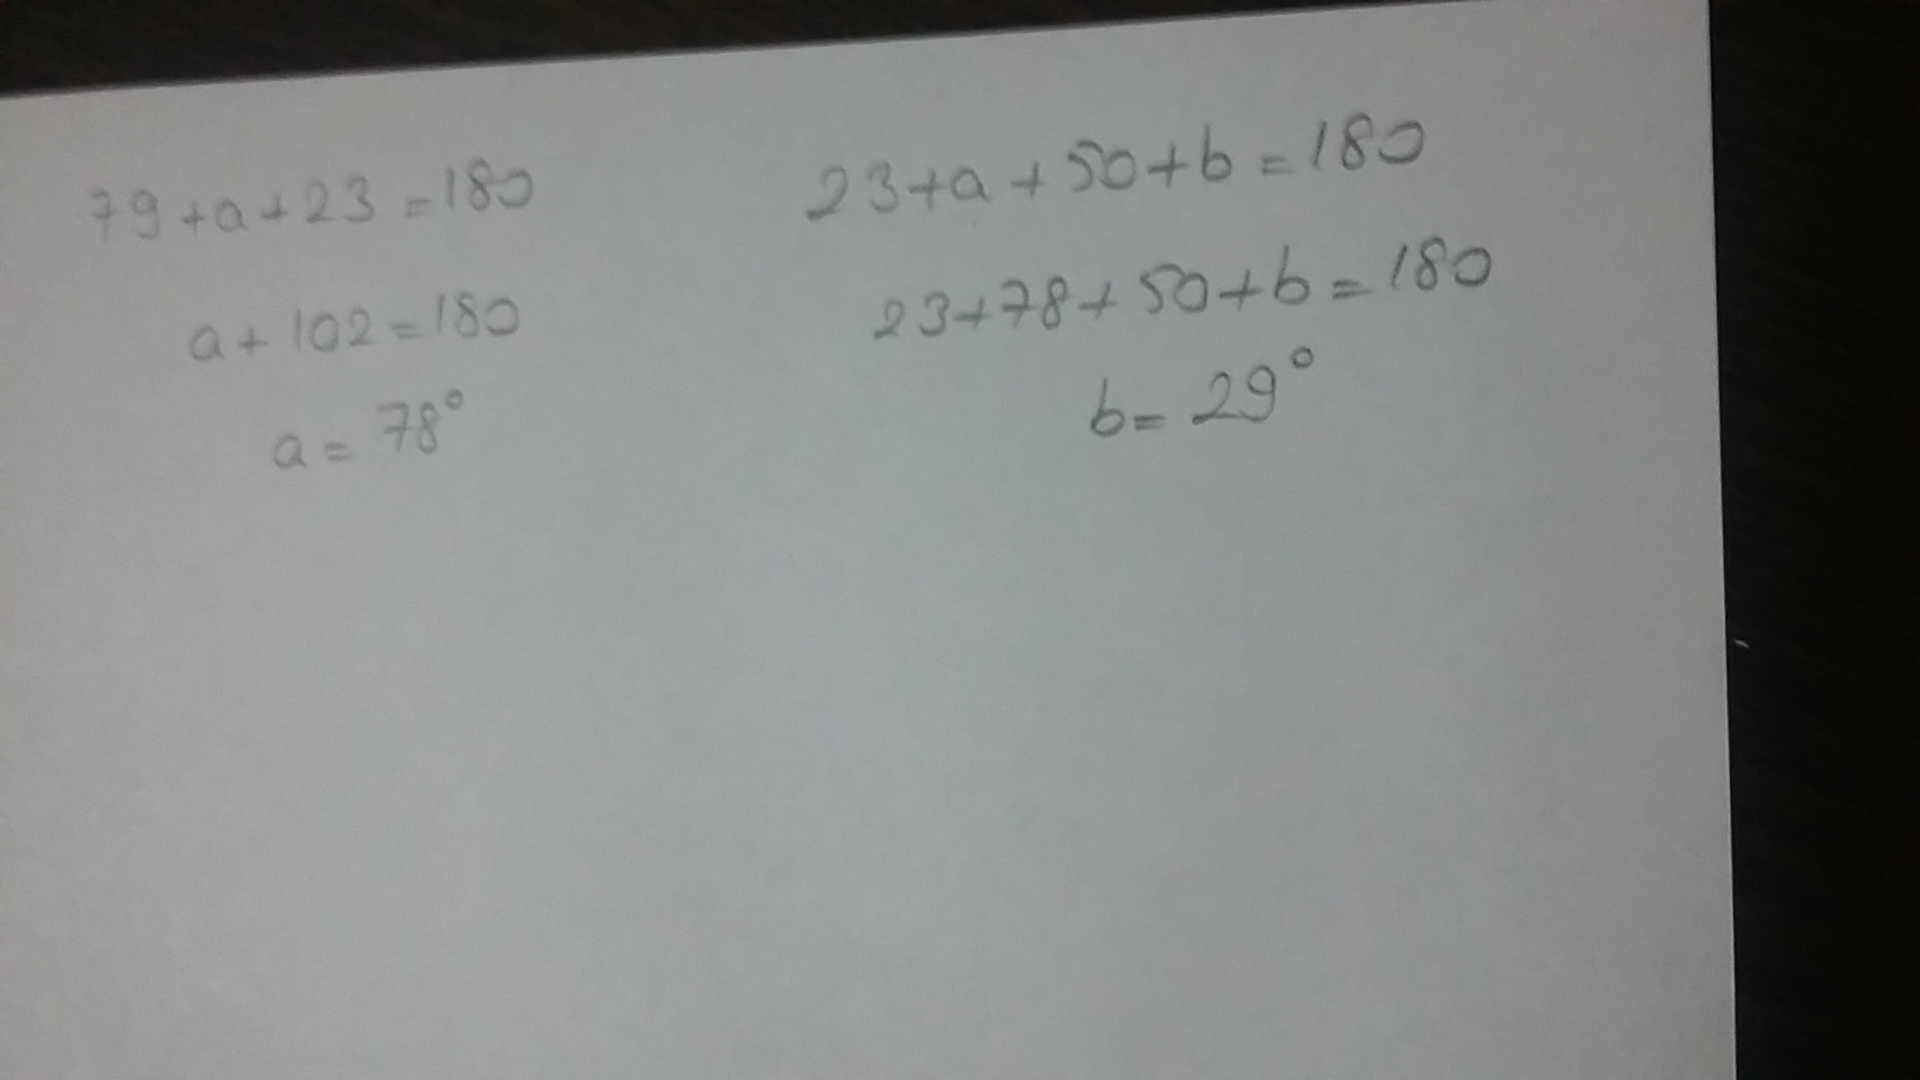 79+a+23=180
a+102=180
a=78°
23+a+50+b=180
23+78+50+b=180
b=29°